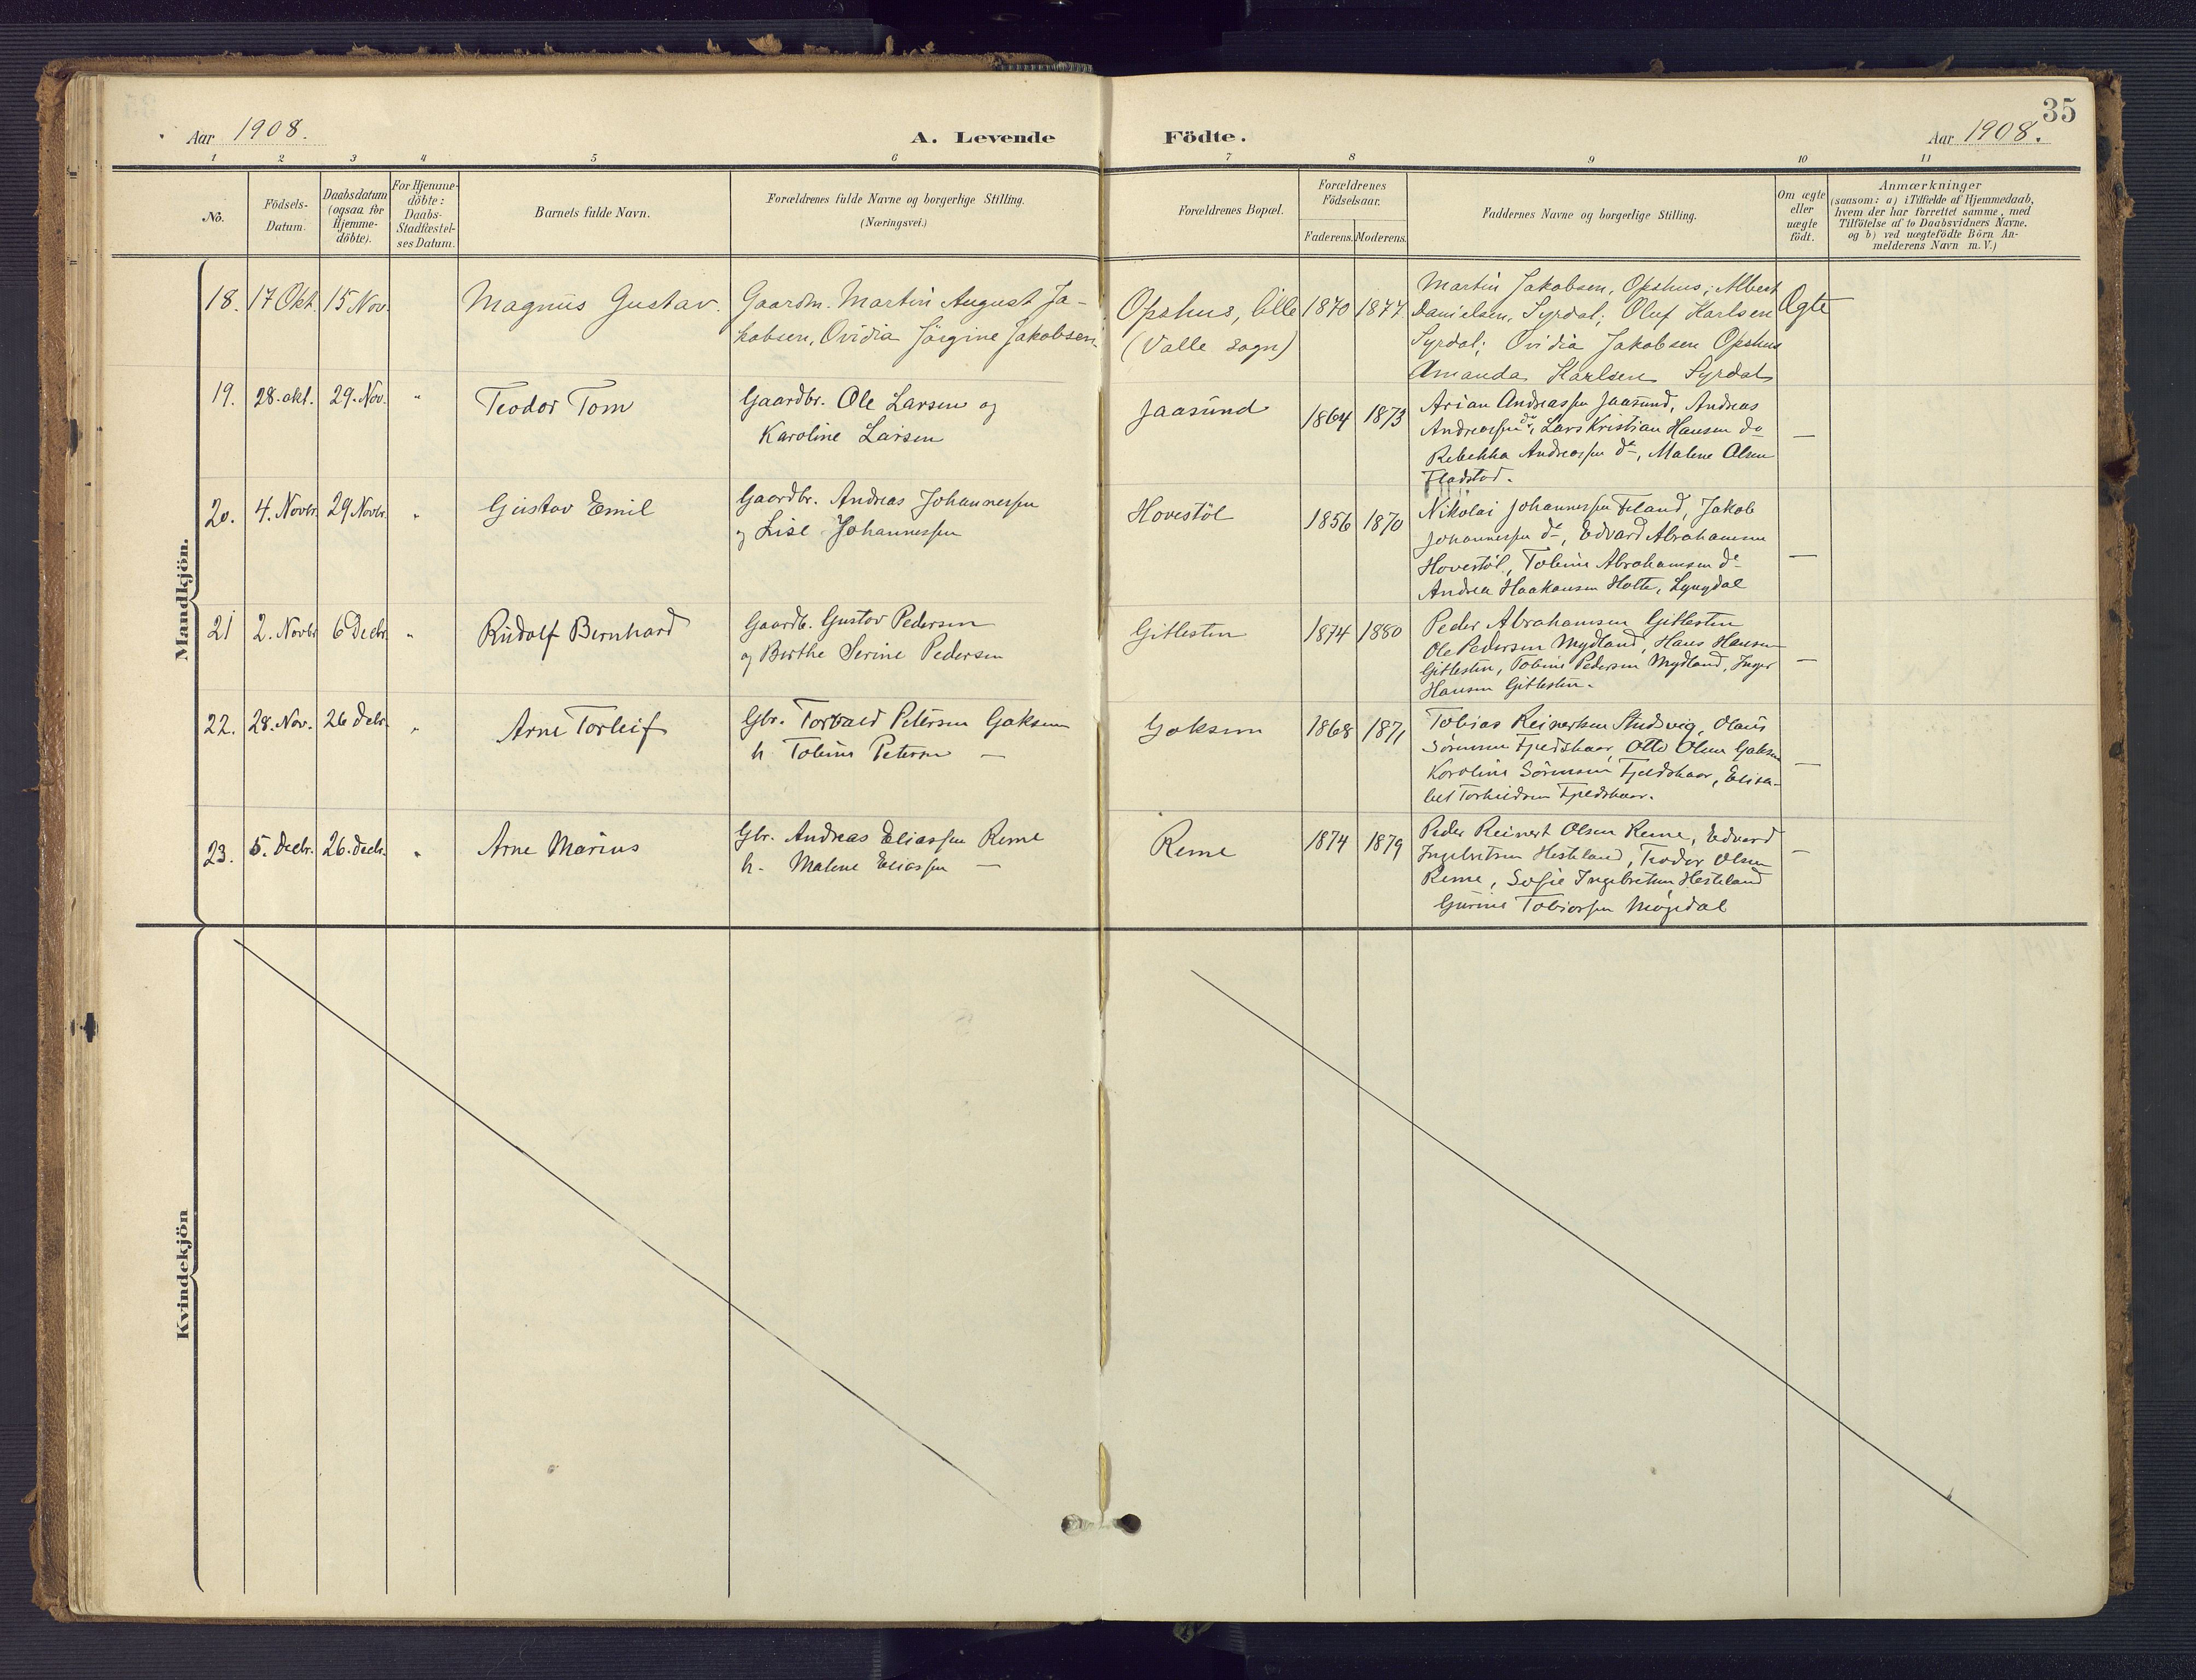 35
Aar 1908.
A. Levende Födte.
Aar 1908.
1 2 3 4 5 6 7 8 9 10 11
No.
Födsels-
Datum.
Daabsdatum
(ogsaa for
Hjemme-
döbte).
For Hjemme-
döbte:
Daabs-
Stadfæstel-
ses Datum.
Barnets fulde Navn.
Forældrenes fulde Navne og borgerlige Stilling.
(Næringsvei.)
Forældrenes Bopæl.
Forældrenes
Födselsaar.
Faderens. Moderens.
Faddernes Navne og borgerlige Stilling.
Om ægte
eller
uægte
födt.
Anmærkninger
(saasom: a) i Tilfælde af Hjemmedaab,
hvem der har forrettet samme, med
Tilföielse af to Daabsvidners Navne.
og b) ved uægtefödte Börn An-
melderens Navn m. V.)
Mandkjön.
18. 17 Okt. 15 Nov. Magnus Gustav.
Gaardm. Martin August Ja-
kobsen, Ovidia Jörgine Jakobsen.
Opshus, lille
(Valle sogn)
1870 1877
Martin Jakobsen, Opshus; Albert
Danielsen, Syrdal; Oluf Karlsen
Syrdal; Ovidia Jakobsen Opshus
Amanda Karlsen Syrdal
Ægte
19. 28. okt. 29. Nov. " Teodor Tom
Gaardbr. Ole Larsen og
Karoline Larsen
Jaasund
1864 1873
Arian Andreassen Jaasund, Andreas
Andreassen do, Lars Kristian Hansen do
Rebekka Andreassen do, Malene Olsen
Fladstad.
—
20. 4. Novbr. 29 Novbr. " Gustav Emil
Gaardbr. Andreas Johannessen
og Lise Johannessen
Hovestöl
1856 1870
Nikolai Johannessen, Jakob
Johannessen do, Edvard Abrahamsen
Hovestöl, Tobine Abrahamsen do
Andrea Haakonsen Holte, Lyngdal
—
21 2. Novbr 6 Decbr. " Rudolf Bernhard
Gaardb. Gustav Pedersen
og Berthe Serine Pedersen
Gitlesten
1874 1880
Peder Abrahamsen Gitlesten
Ole Pedersen Mydland, Hans Hansen
Gitlesten, Tobine Pedersen Mydland, Inger
Hansen Gitlesten.
—
22. 28. Nov. 26 Decbr. " Arne Torleif
Gbr. Torvald Petersen Gaksem
h. Tobine Petersen —
Gaksem
1868 1871
Tobias Reinertsen Studsvig, Olaus
Sörensen Fjeldskaar, Otto Olsen Gaksem
Karoline Sörensen Fjeldskaar, Elisa-
bet Torkildsen Fjeldskaar.
—
23. 5. Decbr. 26. decbr. " Arne Marius
Gbr. Andreas Eliassen Reme
h. Malene Eliassen —
Reme
1874 1879
Peder Reinert Olsen Reme, Edvard
Ingebretsen Hesteland, Teodor Olsen
Reme, Sofie Ingebretsen Hesteland
Gurine Tobiassen
—
Kvindekjön